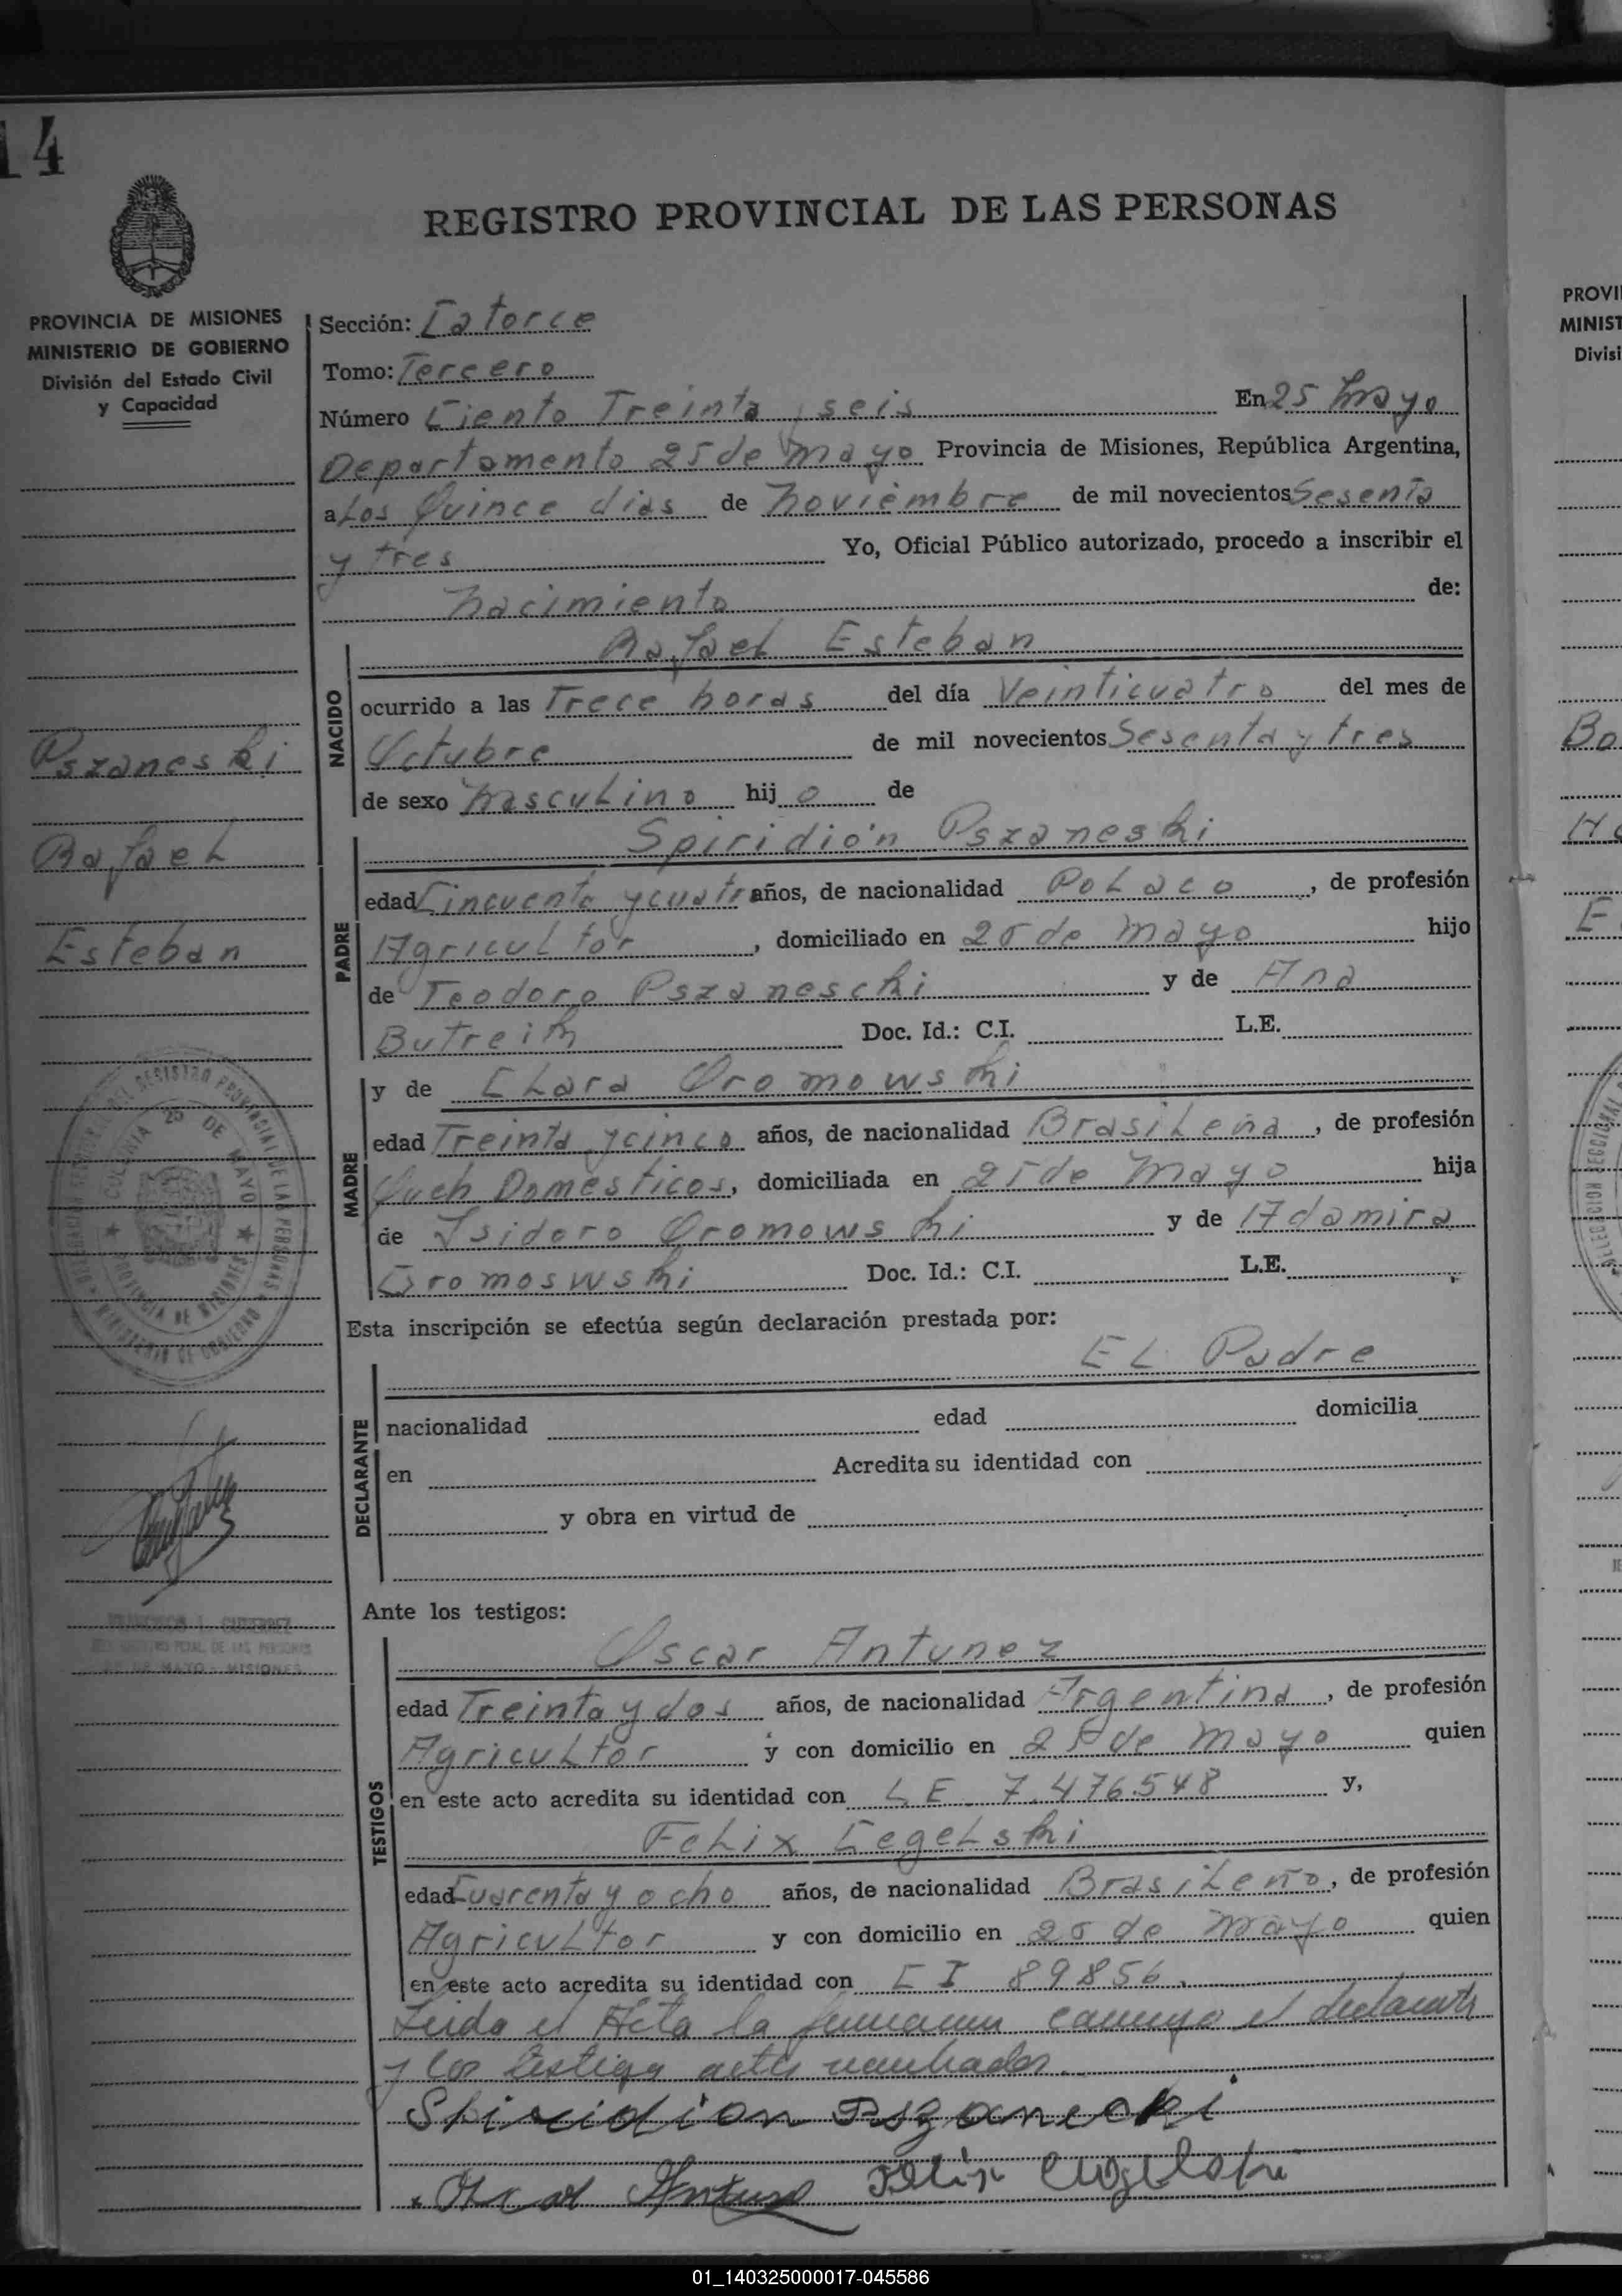 14
REGISTRO PROVINCIAL DE LAS PERSONAS
PROVINCIA DE MISIONES
MINISTERIO DE GOBIERNO
División del Estado Civil
y Capacidad
Sección: Catorce
Tomo: Tercero
Número Ciento Treinta y seis En 25 Mayo
Departamento 25 de Mayo Provincia de Misiones, República Argentina,
a Los Quince dias de Noviembre de mil novecientos Sesenta
y tres Yo, Oficial Público autorizado, procedo a inscribir el
Nacimiento de:
NACIDO
Rafael Esteban
ocurrido a las Trece horas del día Veinticuatro del mes de
Octubre de mil novecientos Sesenta y tres
de sexo Masculino hijo de
Pszaneski
Rafael
Esteban
PADRE
Spiridión Pszaneski
edad Cincuenta y cuatr años, de nacionalidad Polaco, de profesión
Agricultor, domiciliado en 25 de Mayo hijo
de Teodoro Pszaneschi y de Ana
Butreik Doc. Id.: C.I. L.E.
MADRE
y de Clara Gromowski
edad Treinta y cinco años, de nacionalidad Brasileña, de profesión
Queh Domesticos, domiciliada en 25 de Mayo hija
de Isidoro Gromowski y de Adamira
Gromoswski Doc. Id.: C.I. L.E.
REGISTRO PROVINCIAL DE LAS PERSONAS
COLONIA 25 DE MAYO
PROVINCIA DE MISIONES
MINISTERIO DE GOBIERNO
Esta inscripción se efectúa según declaración prestada por:
DECLARANTE
El Padre
nacionalidad edad domicilia
en Acredita su identidad con
y obra en virtud de
Ante los testigos:
TESTIGOS
Oscar Antunez
edad Treinta y dos años, de nacionalidad Argentina, de profesión
Agricultor y con domicilio en 25 de Mayo quien
en este acto acredita su identidad con L E. 7.476.548 y,
Felix Cegelski
edad Cuarenta y ocho años, de nacionalidad Brasileño, de profesión
Agricultor y con domicilio en 25 de Mayo quien
en este acto acredita su identidad con C I 89856.
Leida el Acta la firman conmigo el declarante
y los testigos
Spiridion Pszaneski
Oscar Antunez Felix
PROVI
MINIST
Divisi
01_140325000017-045586